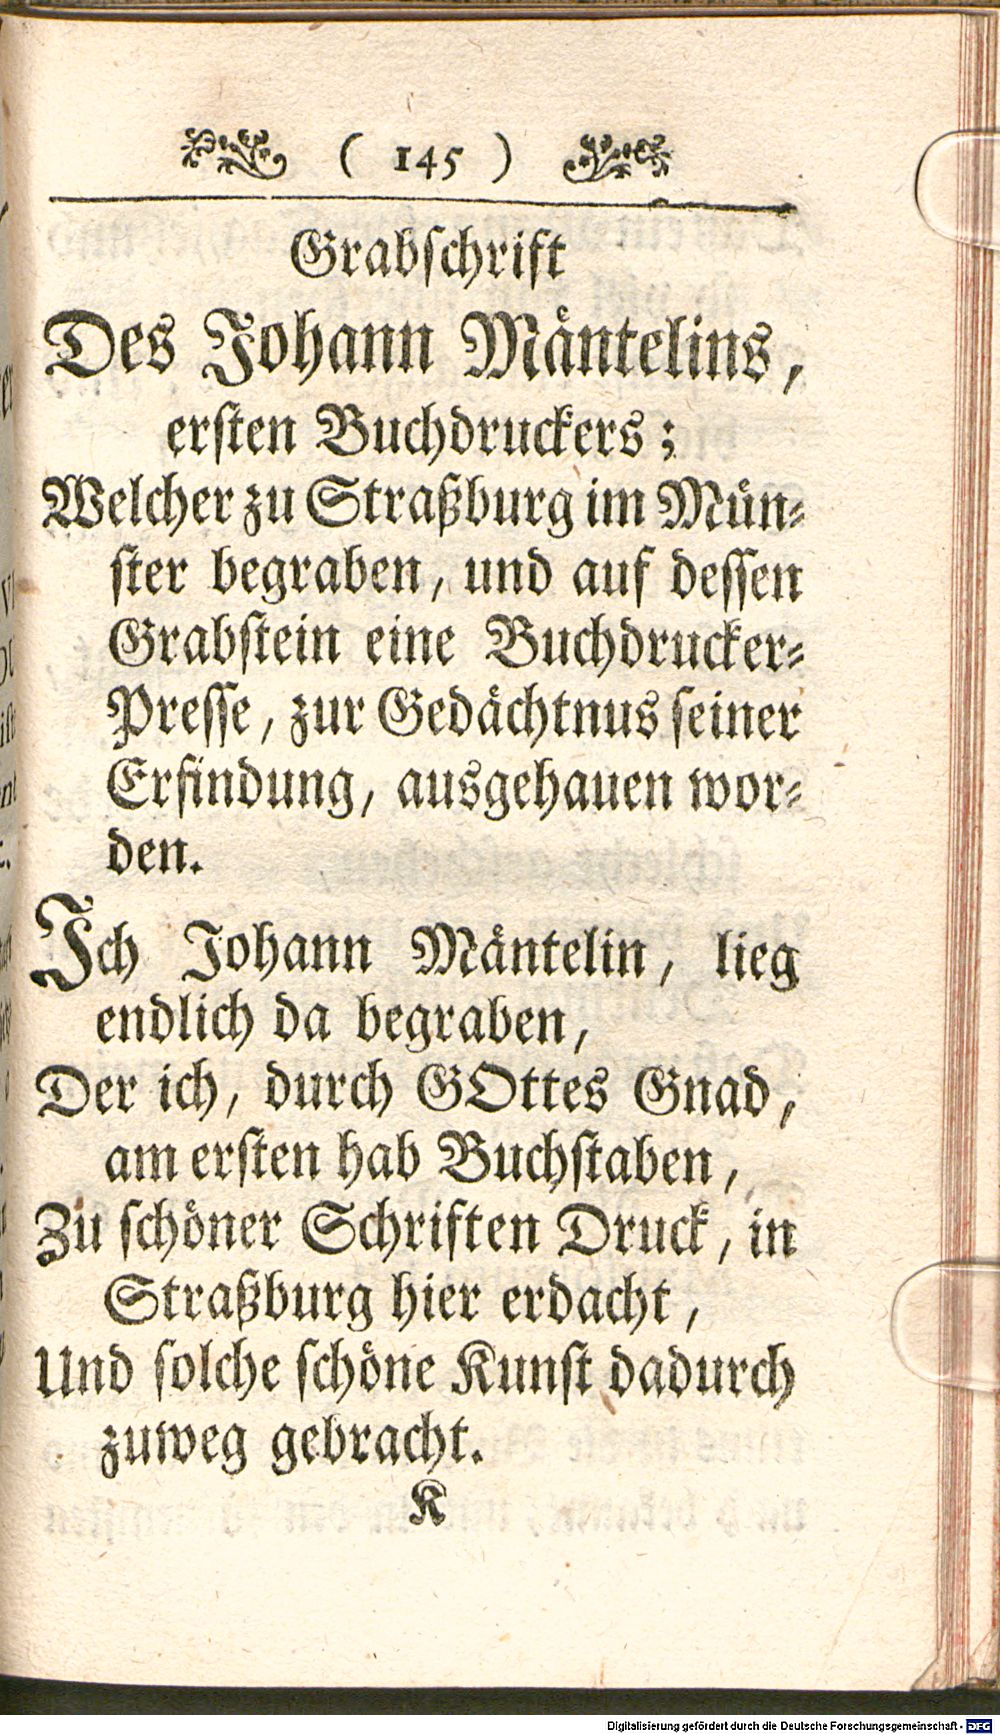 ( 145 )
Grabschrift
Des Johann Mäntelins,
ersten Buchdruckers;
Welcher zu Straßburg im Mün-
ster begraben, und auf dessen
Grabstein eine Buchdrucker-
Presse, zur Gedächtnus seiner
Erfindung, ausgehauen wor-
den.
Ich Johann Mäntelin, lieg
endlich da begraben,
Der ich, durch GOttes Gnad,
am ersten hab Buchstaben,
Zu schöner Schriften Druck, in
Straßburg hier erdacht,
Und solche schöne Kunst dadurch
zuweg gebracht.
K
Digitalisierung gefördert durch die Deutsche Forschungsgemeinschaft - DFG